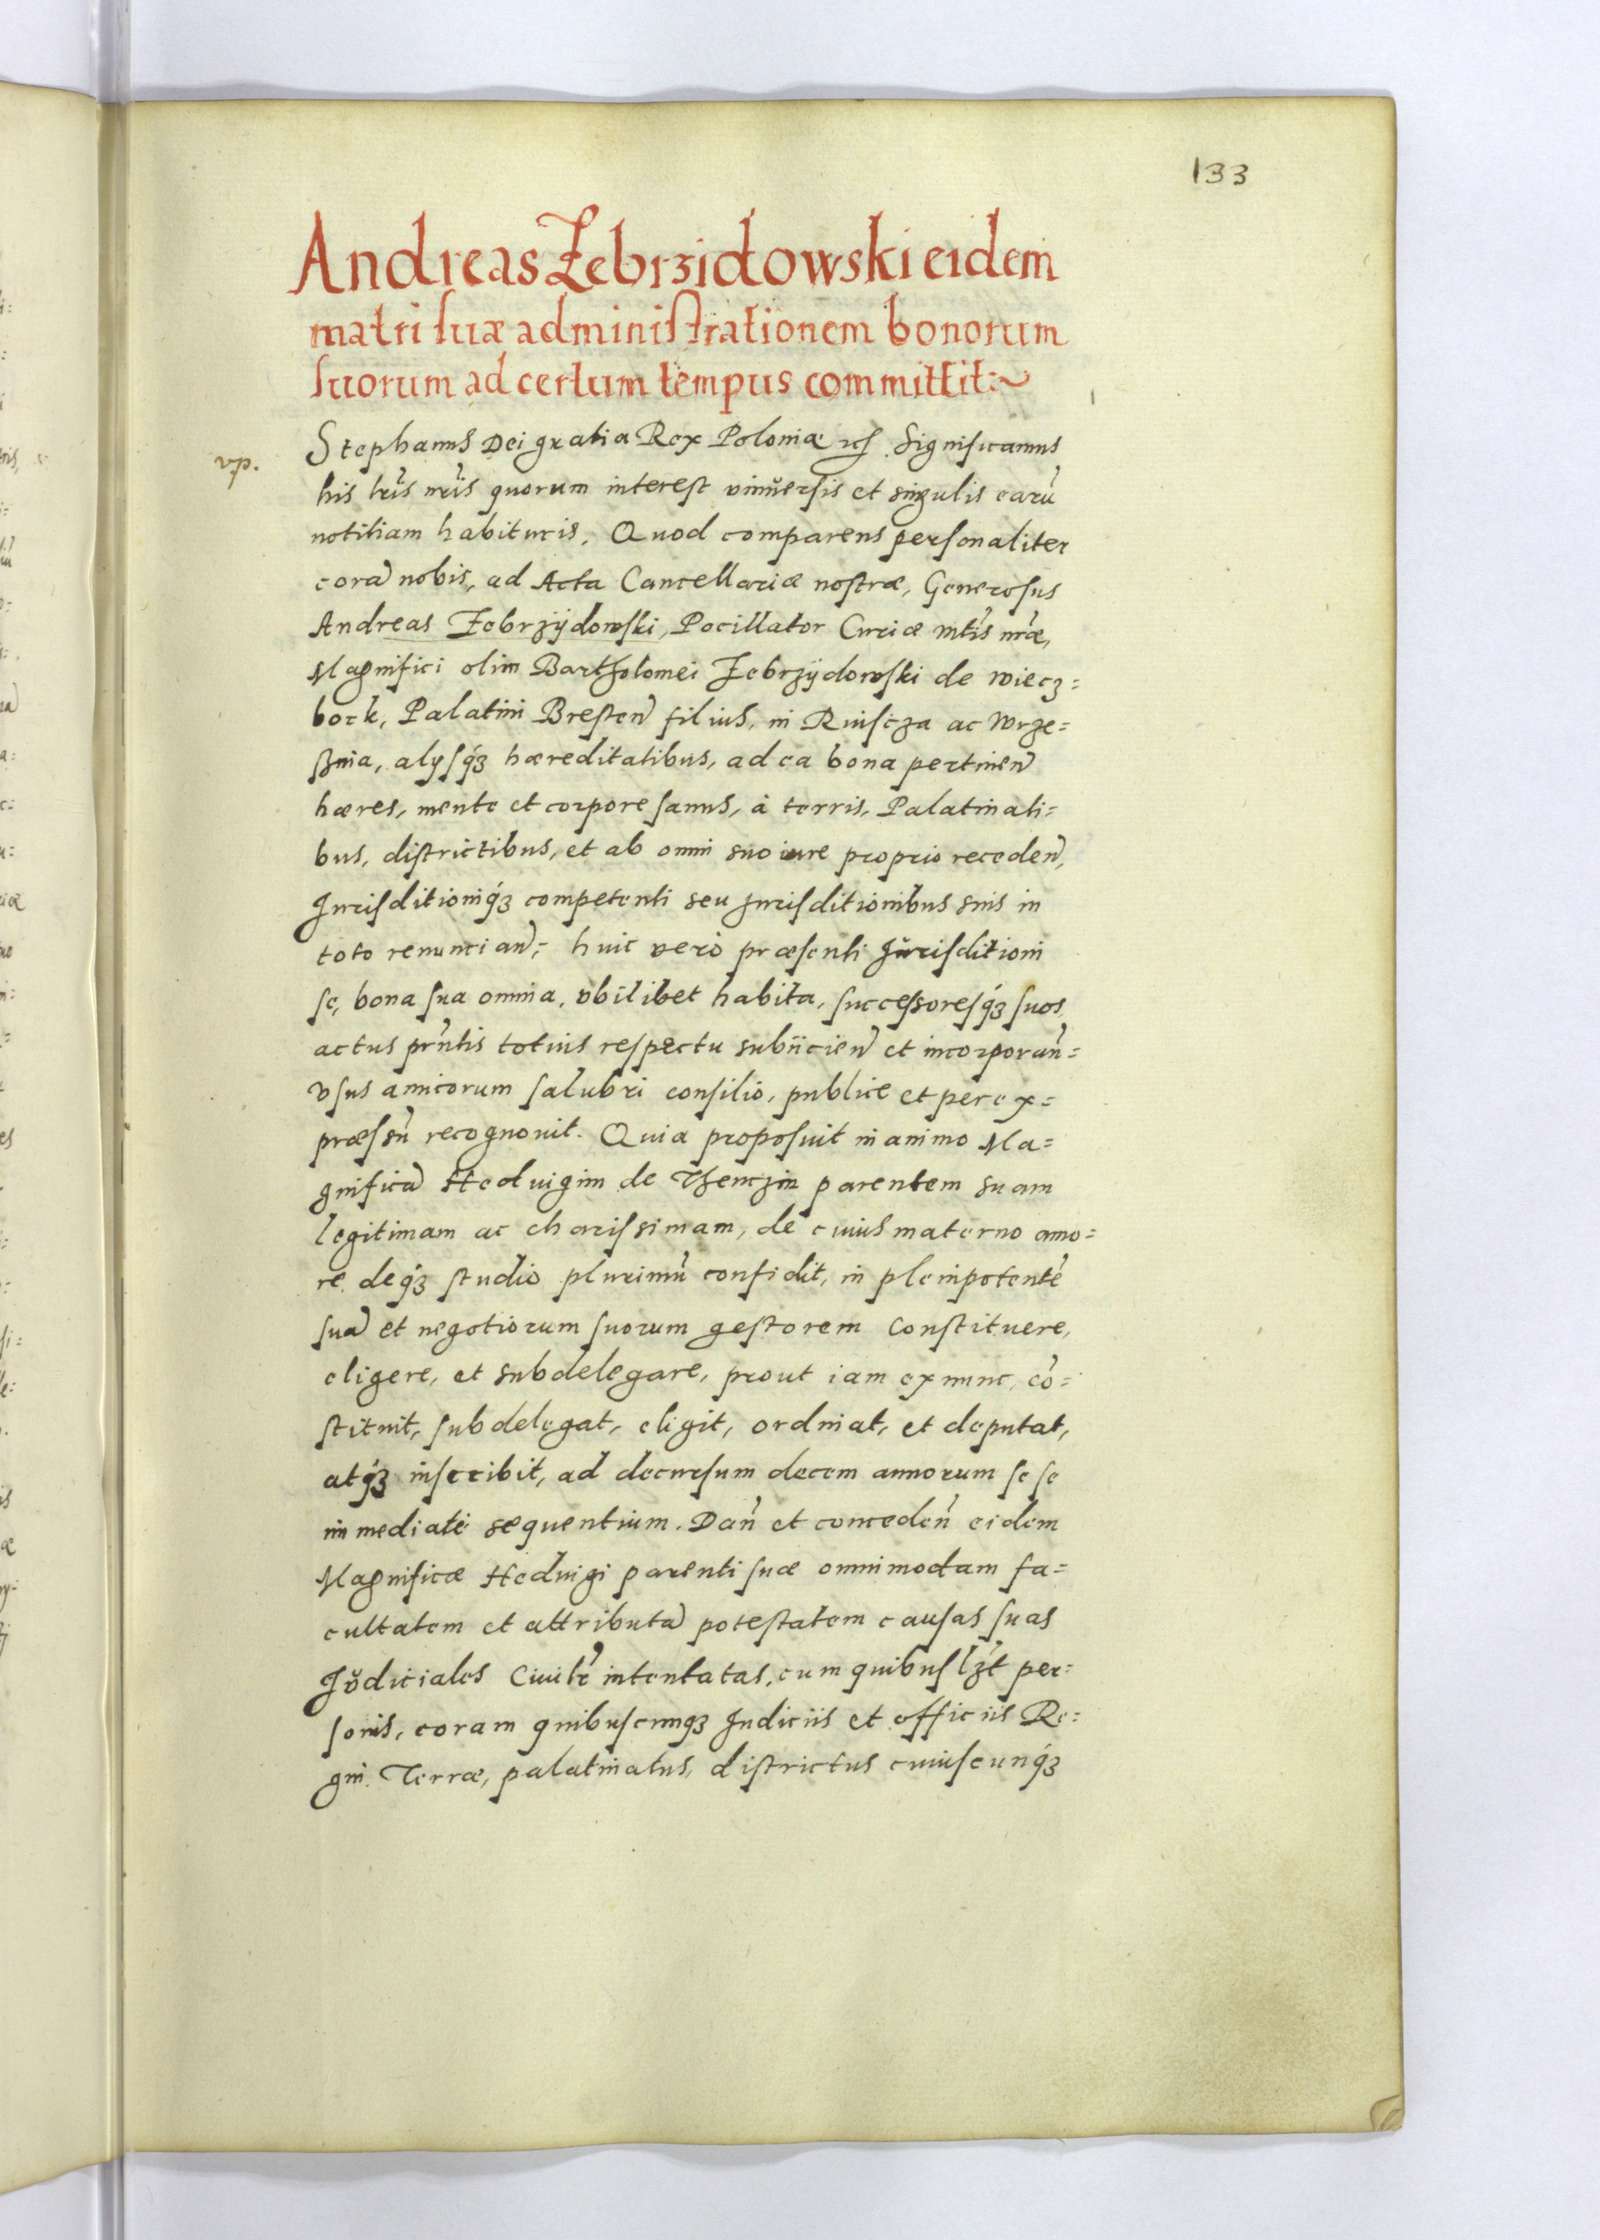 133
Andreas Zebrzidowski eidem
matri suæ administrationem bonorum
suorum ad certum tempus committit:~
vp.
Stephanus Dei gratia Rex Poloniæ etc. Significamus
his lrīs nrīs quorum interest vniuersis et singulis earū
notitiam habituris. Quod comparens personaliter
corā nobis, ad Acta Cancellariæ nostræ, Generosus
Andreas Zebrzÿdowski, Pocillator Curiæ Mtīs nrǣ,
Magnifici olim Bartholomei Zebrzÿdowski de Wiecz=
bock, Palatini Bresteñ filius, in Ruiscza ac Wrze=
sznia, alÿsq́ʒ hæreditatibus, ad ea bona pertineñ
hæres, mente et corpore sanus, à terris, Palatinali=
bus, districtibus, et ab omni suo iure proprio recedeñ,
Jurisditioniq́ʒ competenti seu jurisditionibus suis in
toto renunciañ; huic verò præsenti Jurisditioni
se, bona sua omnia, vbilibet habita, successoresq́ʒ suos,
actus prn̄tis totius respectu subÿcieñ et incorporañ=
vsus amicorum salubri consilio, publice et per ex=
præssū recognouit. Quia proposuit in animo Ma=
gnificā Heduigim de Thenczin parentem suam
legitimam ac charissimam, de cuius materno amo=
re, deq́ʒ studio plurimū confidit, in plenipotentē
suā et negotiorum suorum gestorem constituere,
eligere, et subdelegare, prout iam ex nunc, cō=
stituit, subdelegat, eligit, ordinat, et deputat,
atq́ʒ inscribit, ad decursum decem annorum se se
immediatè sequentium. Dañ et concedeñ eidem
Magnificæ Heduigi parenti suæ omnimodam fa=
cultatem et attributā potestatem causas suas
Judiciales Ciuilr̄ intentatas, cum quibuslʒt per=
sonis, coram quibuscunqʒ Judiciis et officiis Re=
gni. Terræ, palatinatus, districtus cuiuscunq́ʒ